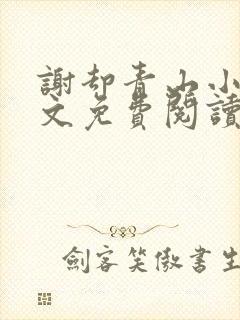 謝却青山小
文免費閱讀
劍客笑傲書生